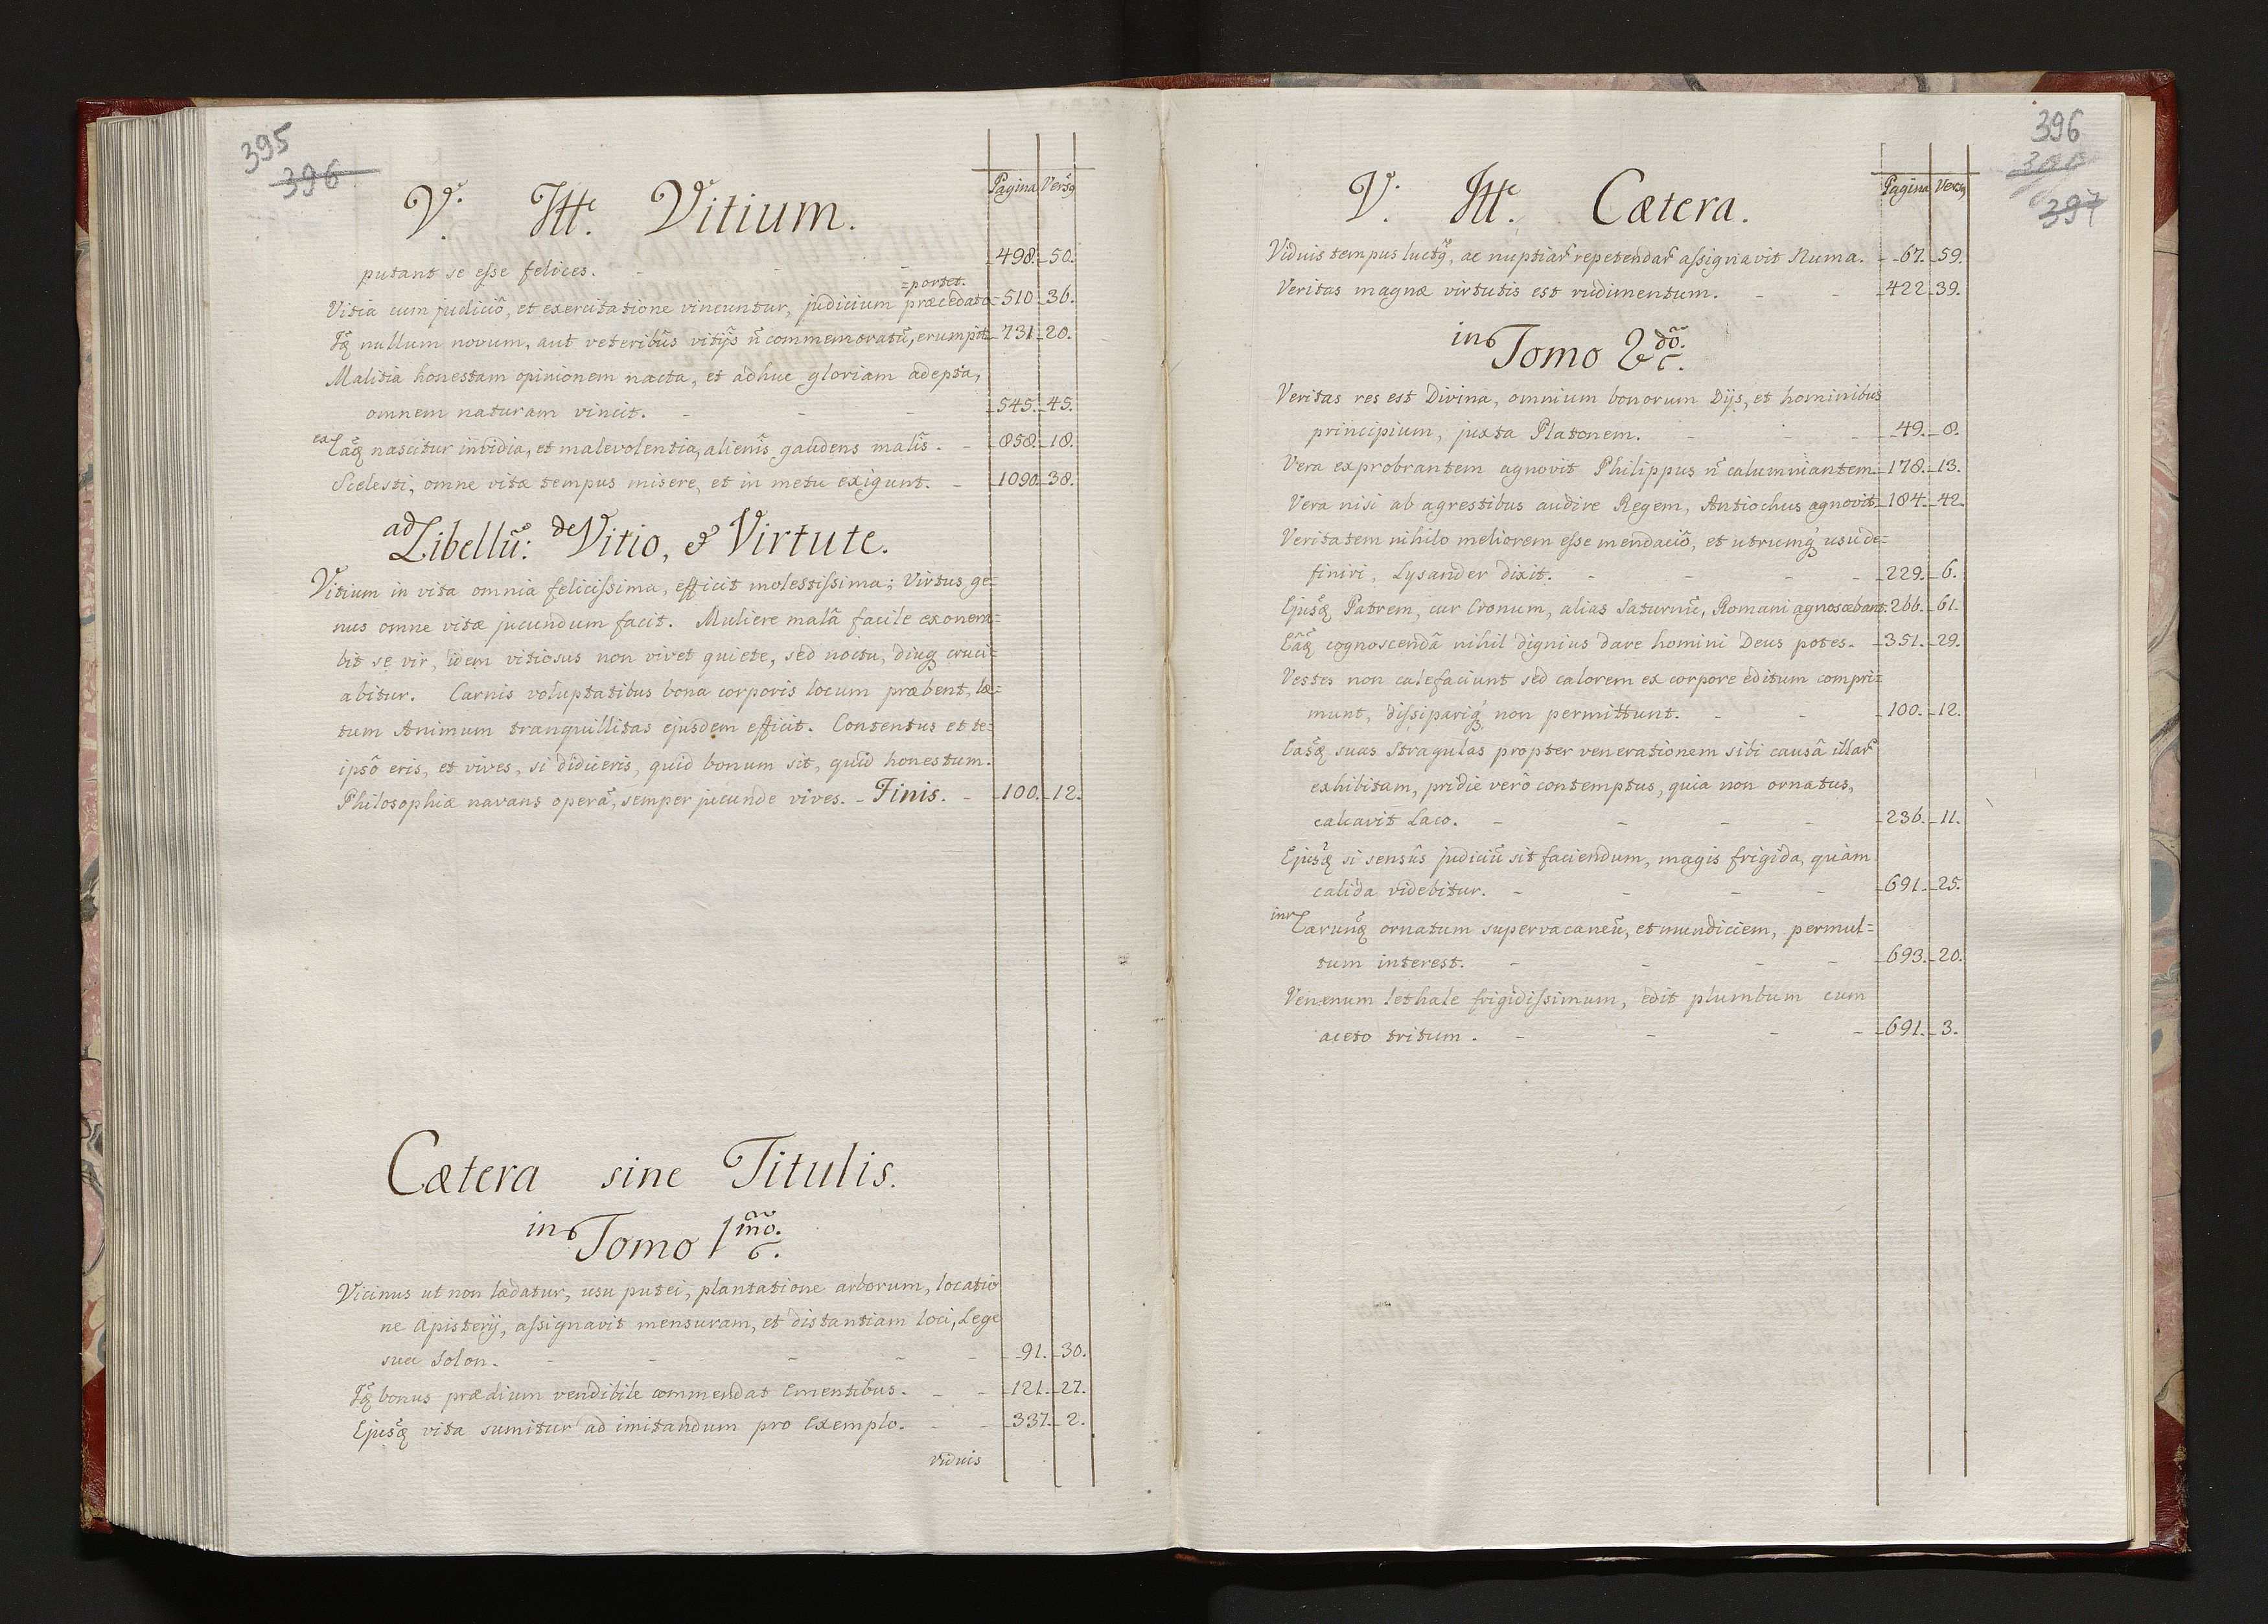 395
396
V. Ittẽ Vitium.
Pagina Versq
putant se esse felices. - - - 498. 50.
=portet.
Vitia cum judiciõ, et exercitatione vincuntur, judicium præcedato= 510. 36.
Iq̃ nullum novum, aut veteribũs vitijs ñ commemoratũ, erumpit 731. 20.
Malitia honestam opinionem nacta, et adhuc gloriam adepta,
omnem naturam vincit. - - - 545. 45.
ex Eãq̃ nascitur invidia, et malevolentia, alienis gaudens malis. - 858. 18.
Scelesti, omne vitæ tempus misere, et in metu exigunt. - 1090. 38.
ad Libellũ: de Vitio, & Virtute.
Vitium in vita omnia felicissima, efficit molestissima; Virtus ge=
nus omne vitæ jucundum facit. Muliere malâ facile exonera=
bit se vir, idem vitiosus non vivet quiete, sed noctu, diuq cruci=
abitur. Carnis voluptatibus bona corporis locum præbent, læ=
tum Animum tranquillitas ejusdem efficit. Contentus et te=
ipsô eris, et vives, si didiceris, quid bonum sit, quid honestum.
Philosophiæ navans operã, semper jucunde vives. - Finis. - 100. 12.
Cætera sine Titulis.
in Tomo 1mõ.
Vicinus ut non lædatur, usu putei, plantatione arborum, locatio
ne Apisterij, assignavit mensuram, et distantiam loci, Lege
sua Solon. - - - - - 91. 30.
Iq̃ bonus prædium vendibile commendat Ementibus. - - 121. 27.
Ejusq̃ vita sumitur ad imitandum pro Exemplo. - - 337. 2.
viduis
396
397
V. Itt. Cætera.
Pagina Versq
Viduis tempus luctq̃, ac nuptiar̃ repetendar̃ assignavit Numa. 67. 59.
Veritas magnæ virtutis est rudimentum. - - 422. 39.
in Tomo 2dõ.
Veritas res est Divina, omnium bonorum Dijs, et hominibus
principium, juxta Platonem. - - - 49. 8.
Vera exprobrantem agnovit Philippus ñ calumniantem 178. 13.
Vera nisi ab agrestibus audire Regem, Antiochus agnovit 184. 42.
Veritatem nihilo meliorem esse mendaciô, et utrumq̃ usu de=
finiri, Lysander dixit. - - - - 229. 6.
Ejusq̃ Patrem, cur Cronum, alias Saturnũ, Romani agnoscebant. 266. 61.
Eâq̃ cognoscendâ nihil dignius dare homini Deus potes. - 351. 29.
Vestes non calefaciunt sed calorem ex corpore editum compri=
munt, dissiparig̃ non permittunt. - - - 100. 12.
Easq̃ suas stragulas propter venerationem sibi causâ illar̃
exhibitam, pridie verò contemptus, quia non ornatus,
calcavit Laco. - - - - 236. 11.
Ejusq̃ si sensûs judiciũ sit faciendum, magis frigida, quàm
calida videbitur. - - - - 691. 25.
inr Earunq̃ ornatum supervacaneũ, et mundiciem, permul=
tum interest. - - - - 693. 20.
Venenum lethale frigidissimum, edit plumbum cum
aceto tritum. - - - - 691. 3.